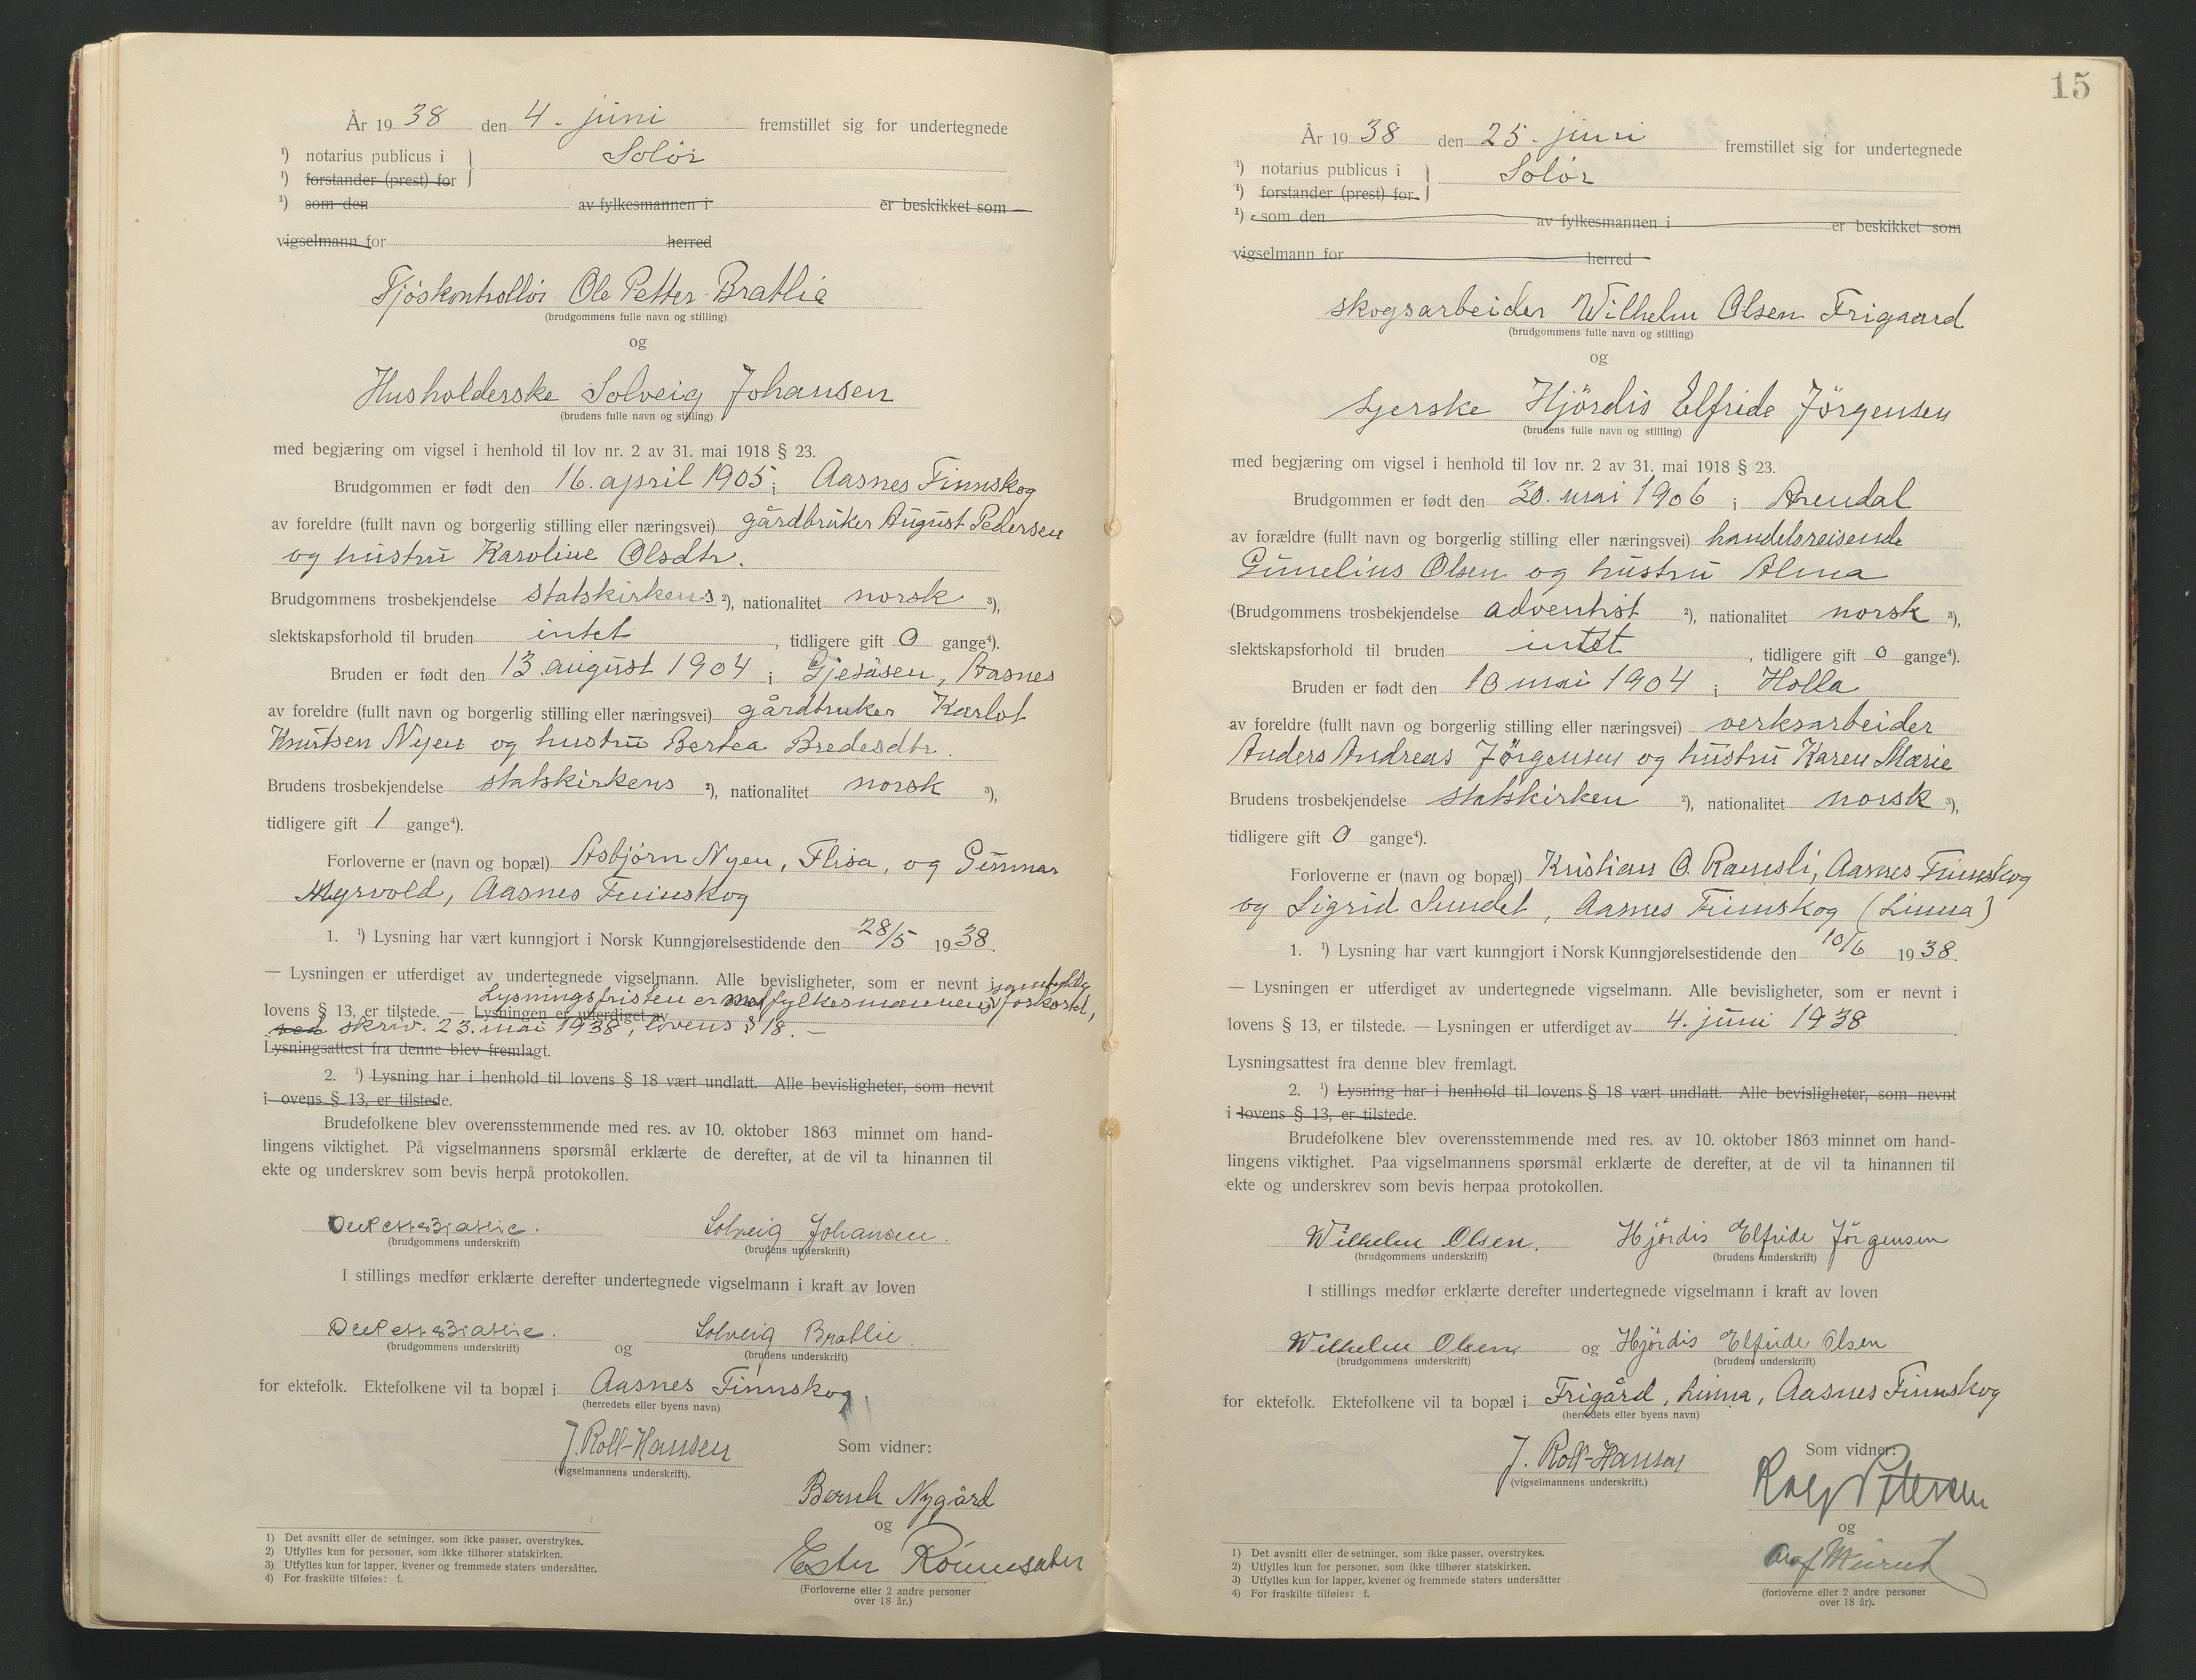 År 1938 den 4. juni fremstillet sig for undertegnede
¹) notarius publicus i } Solør
¹) forstander (prest) for
¹) som den av fylkesmannen i er beskikket som
vigselmann for herred
Fjøskontrollør Ole Petter Bratlie
(brudgommens fulle navn og stilling)
og
Husholderske Solveig Johansen
(brudens fulle navn og stilling)
med begjæring om vigsel i henhold til lov nr. 2 av 31. mai 1918 § 23.
Brudgommen er født den 16. april 1905 i Aasnes Finnskog
av foreldre (fullt navn og borgerlig stilling eller næringsvei) gårdbruker August Pedersen
og hustru Karoline Olsdtr.
Brudgommens trosbekjendelse statskirkens ²), nationalitet norsk ³),
slektskapsforhold til bruden intet, tidligere gift 0 gange⁴).
Bruden er født den 13. august 1904 i Gjesåsen, Aasnes
av foreldre (fullt navn og borgerlig stilling eller næringsvei) gårdbruker Karlot
Knutsen Nyen og hustru Bertea Bredesdtr.
Brudens trosbekjendelse statskirkens ²), nationalitet norsk ³),
tidligere gift 1 gange⁴).
Forloverne er (navn og bopæl) Asbjørn Nyen, Flisa, og Gunnar
Myrvold, Aasnes Finnskog
1. ¹) Lysning har vært kunngjort i Norsk Kunngjørelsestidende den 28/5 1938.
— Lysningen er utferdiget av undertegnede vigselmann. Alle bevisligheter, som er nevnt i
Lysningsfristen er med fylkesmannens samtykke forkortet,
lovens § 13, er tilstede. — Lysningen er utferdiget av
ved skriv. 23. mai 1938, lovens § 18. —
Lysningsattest fra denne blev fremlagt.
2. ¹) Lysning har i henhold til lovens § 18 vært undlatt. Alle bevisligheter, som nevnt
i ovens § 13, er tilstede.
Brudefolkene blev overensstemmende med res. av 10. oktober 1863 minnet om hand-
lingens viktighet. På vigselmannens spørsmål erklærte de derefter, at de vil ta hinannen til
ekte og underskrev som bevis herpå protokollen.
Ole Petter Bratlie. Solveig Johansen.
(brudgommens underskrift) (brudens underskrift)
I stillings medfør erklærte derefter undertegnede vigselmann i kraft av loven
Ole Petter Bratlie. og Solveig Bratlie.
(brudgommens underskrift) (brudens underskrift)
for ektefolk. Ektefolkene vil ta bopæl i Aasnes Finnskog
(herredets eller byens navn)
J. Roll-Hansen Som vidner:
(vigselmannens underskrift).
Bernh Nygård
og
Ester
(Forloverne eller 2 andre personer
over 18 år.)
1) Det avsnitt eller de setninger, som ikke passer, overstrykes.
2) Utfylles kun for personer, som ikke tilhører statskirken.
3) Utfylles kun for lapper, kvener og fremmede staters undersåtter.
4) For fraskilte tilføies: f.
15
År 1938 den 25. juni fremstillet sig for undertegnede
¹) notarius publicus i } Solør
¹) forstander (prest) for
¹) som den av fylkesmannen i er beskikket som
vigselmann for herred
skogsarbeider Wilhelm Olsen Frigaard
(brudgommens fulle navn og stilling)
og
syerske Hjördis Elfride Jörgensen
(brudens fulle navn og stilling)
med begjæring om vigsel i henhold til lov nr. 2 av 31. mai 1918 § 23.
Brudgommen er født den 30. mai 1906 i Arendal
av forældre (fullt navn og borgerlig stilling eller næringsvei) handelsreisende
Gunelius Olsen og hustru Alma
(Brudgommens trosbekjendelse adventist ²), nationalitet norsk ³),
slektskapsforhold til bruden intet, tidligere gift 0 gange⁴).
Bruden er født den 10 mai 1904 i Holla
av foreldre (fullt navn og borgerlig stilling eller næringsvei) verksarbeider
Anders Andreas Jörgensen og hustru Karen Marie
Brudens trosbekjendelse statskirken ²), nationalitet norsk ³),
tidligere gift 0 gange⁴).
Forloverne er (navn og bopæl) Kristian O. Ramsli, Aasnes Finnskog
og Sigrid Sundet, Aasnes Finnskog (Linna)
1. ¹) Lysning har vært kunngjort i Norsk Kunngjørelsestidende den 10/6 1938.
— Lysningen er utferdiget av undertegnede vigselmann. Alle bevisligheter, som er nevnt i
lovens § 13, er tilstede. — Lysningen er utferdiget av 4. juni 1938
Lysningsattest fra denne blev fremlagt.
2. ¹) Lysning har i henhold til lovens § 18 vært undlatt. Alle bevisligheter, som nevnt
i lovens § 13, er tilstede.
Brudefolkene blev overensstemmende med res. av 10. oktober 1863 minnet om hand-
lingens viktighet. Paa vigselmannens spørsmål erklærte de derefter, at de vil ta hinannen til
ekte og underskrev som bevis herpaa protokollen.
Wilhelm Olsen. Hjördis Elfride Jörgensen
(brudgommens underskrift) (brudens underskrift)
I stillings medfør erklærte derefter undertegnede vigselmann i kraft av loven
Wilhelm Olsen og Hjördis Elfride Olsen
(brudgommens underskrift) (brudens underskrift)
for ektefolk. Ektefolkene vil ta bopæl i Frigård, Linna, Aasnes Finnskog
(herredets eller byens navn)
J. Roll-Hansen Som vidner:
(vigselmannens underskrift.)
Rolf Petersen
og
Olaf
(forloverne eller 2 andre personer
over 18 år).
1) Det avsnitt eller de setninger, som ikke passer, overstrykes.
2) Utfylles kun for personer, som ikke tilhører statskirken.
3) Utfylles kun for lapper, kvener og fremmede staters undersåtter
4) For fraskilte tilføies: f.